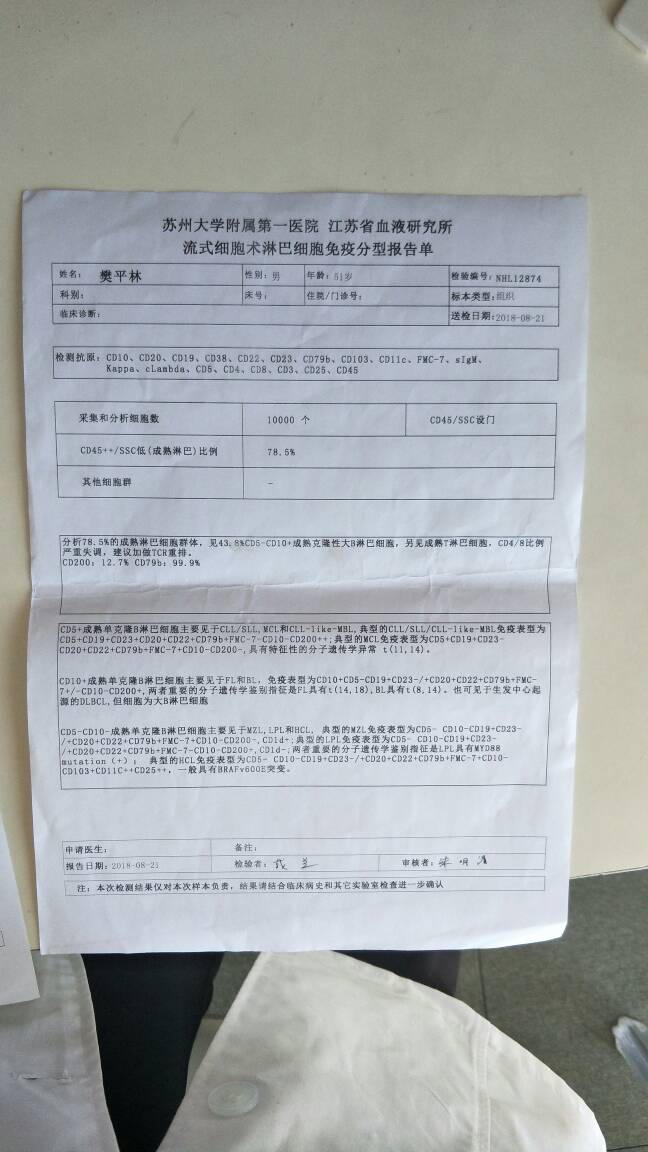 苏州大学附属第一医院 江苏省血液研究所
流式细胞术淋巴细胞免疫分型报告单
姓名： 樊平林 性别：男 年龄：51岁 检验编号：NHL12874
科别： 床号： 住院/门诊号： 标本类型：组织
临床诊断： 送检日期：2018-08-21
检测抗原：CD10、CD20、CD19、CD38、CD22、CD23、CD79b、CD103、CD11c、FMC-7、sIgM、
Kappa、cLambda、CD5、CD4、CD8、CD3、CD25、CD45
采集和分析细胞数 10000 个 CD45/SSC设门
CD45++/SSC低(成熟淋巴)比例 78.5%
其他细胞群 -
分析78.5%的成熟淋巴细胞群体，见43.8%CD5-CD10+成熟克隆性大B淋巴细胞，另见成熟T淋巴细胞，CD4/8比例
严重失调，建议加做TCR重排。
CD200：12.7% CD79b：99.9%
CD5+成熟单克隆B淋巴细胞主要见于CLL/SLL,MCL和CLL-like-MBL,典型的CLL/SLL/CLL-like-MBL免疫表型为
CD5+CD19+CD23+CD20+CD22+CD79b+FMC-7-CD10-CD200++;典型的MCL免疫表型为CD5+CD19+CD23-
CD20+CD22+CD79b+FMC-7+CD10-CD200-,具有特征性的分子遗传学异常 t(11,14)。
CD10+成熟单克隆B淋巴细胞主要见于FL和BL, 免疫表型为CD10+CD5-CD19+CD23-/+CD20+CD22+CD79b+FMC-
7+/-CD10-CD200+,两者重要的分子遗传学鉴别指征是FL具有t(14,18),BL具有t(8,14)。也可见于生发中心起
源的DLBCL,但细胞为大B淋巴细胞
CD5-CD10-成熟单克隆B淋巴细胞主要见于MZL,LPL和HCL, 典型的MZL免疫表型为CD5- CD10-CD19+CD23-
/+CD20+CD22+CD79b+FMC-7+CD10-CD200-,CD1d+;典型的LPL免疫表型为CD5- CD10-CD19+CD23-
/+CD20+CD22+CD79b+FMC-7-CD10-CD200+,CD1d-;两者重要的分子遗传学鉴别指征是LPL具有MYD88
mutation（+）； 典型的HCL免疫表型为CD5- CD10-CD19+CD23-/+CD20+CD22+CD79b+FMC-7+CD10-
CD103+CD11C++CD25++，一般具有BRAFv600E突变。
申请医生： 备注：
报告日期：2018-08-21 检验者： 审核者：
注：本次检测结果仅对本次样本负责，结果请结合临床病史和其它实验室检查进一步确认